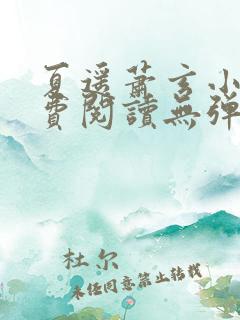 夏遥萧玄小
费阅读无弹
杜尔
未经同意禁止转载